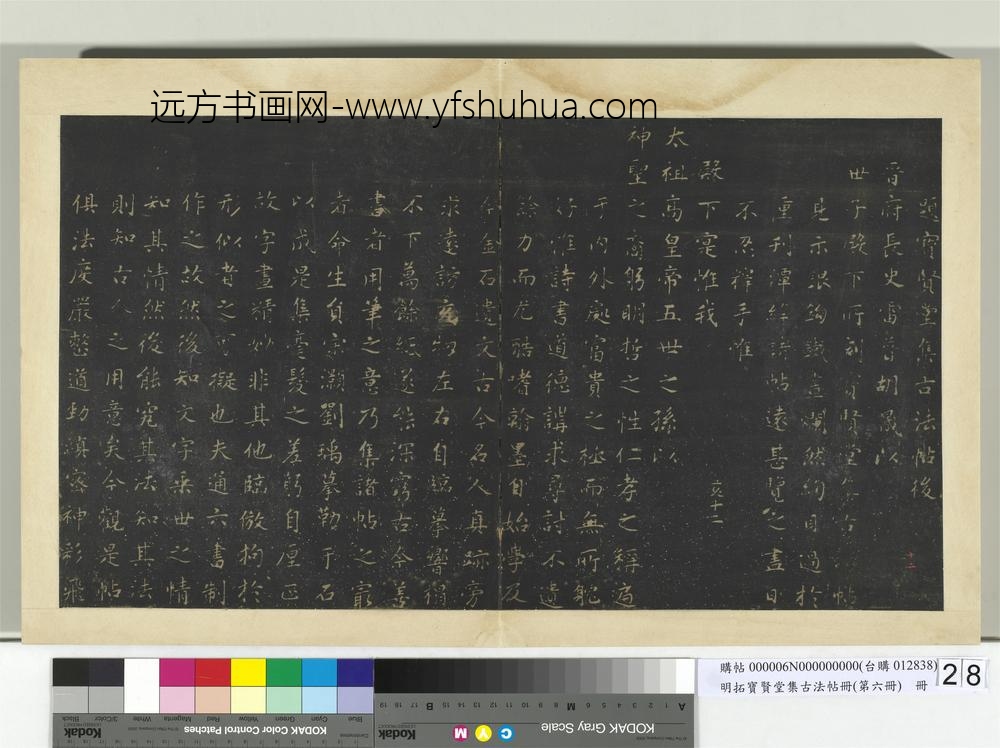 远方书画网-www.yfshuhua.com
題寶賢堂集古法帖後
晉府長史胡晟以
世子殿下所刻寶賢堂集古帖
見示眼絢然絢目過於
重刊潭絳諸帖遠甚覽之盡日
不忍釋手惟
殿下寔惟我
六十二
太祖高皇帝五世之孫以
神聖之裔躬明哲之性仁孝之稱
于內外處富貴之極而無所
好惟詩書道德講求尋討不遺
餘力而尤酷嗜翰墨自始學及
今金石遺文古今名人真跡旁
求遠訪左右自臨摹響搨
不下萬餘紙遂深窮古今善
書者用筆之意乃集諸帖之最
者命生員宋灝劉瑀摹勒于石
以成是集毫髮之差躬自厘正
故字畫精妙非其他臨倣拘於
形似者之可擬也夫通六書制
作之故然後知文字垂世之情
知其情然後能究其法知其法
則知古人之用意矣今觀是帖
俱法度嚴整遒勁縝密神彩飛
十二
購帖 000006N000000000(台購 012838)
明拓寶賢堂集古法帖冊(第六冊) 冊
28
KODAK Color Control Patches
Kodak
Blue
Cyan
Green
Yellow
Red
Magenta
White
3/Color
Black
KODAK Gray Scale
Kodak
C Y M
A 1 2 3 4 5 6 M 8 9 10 11 12 13 14 15 B 17 18 19